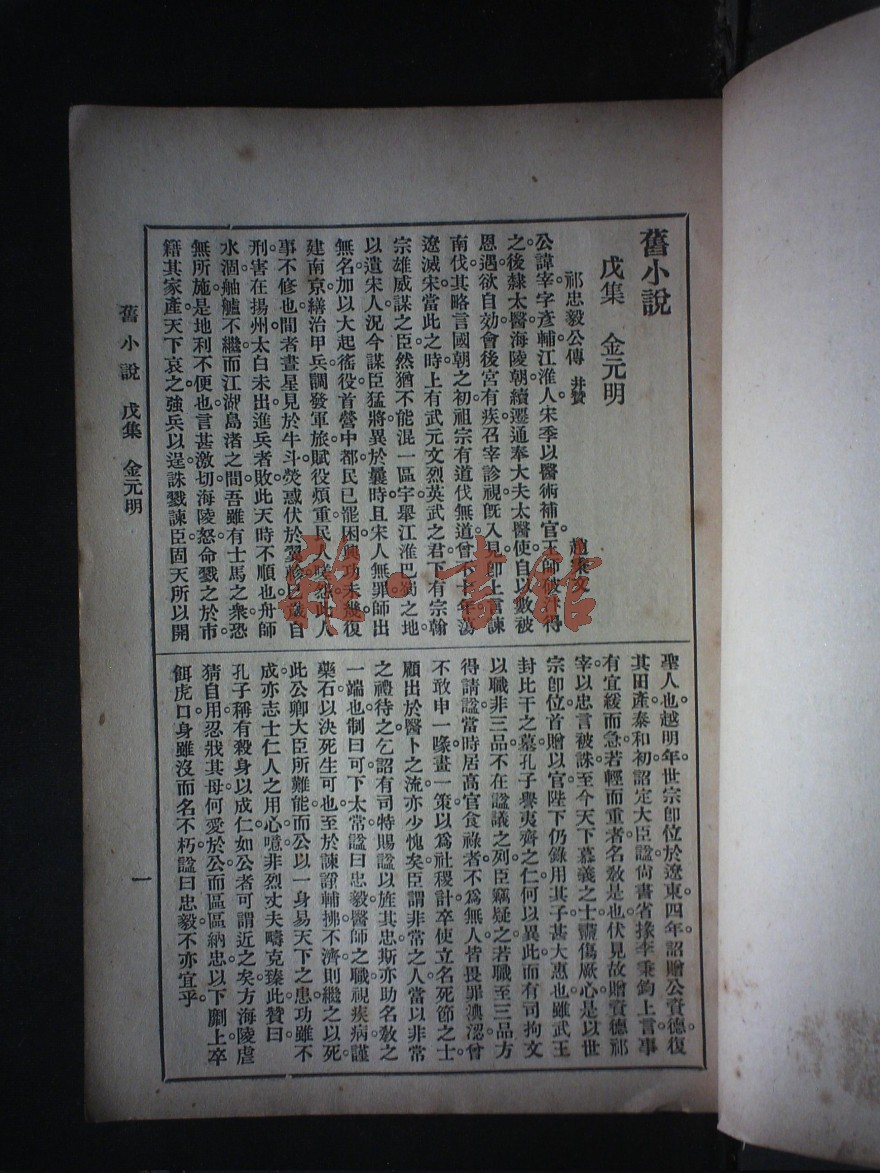 舊小說
戊集　金元明
祁忠毅公傳　并贊　趙秉文
公諱宰字彥輔江淮人宋季以醫術補官王師破汴得
之後隸太醫海陵朝續遷通奉大夫太醫使自以數被
恩遇欲自効會後宮有疾召宰診視旣入見卽上言諫
南伐其略言國朝之初祖宗有道伐無道曾不十年蕩
遼滅宋當此之時上有武元文烈英武之君下有宗翰
宗雄威謀之臣然猶不能混一區宇舉江淮巴蜀之地
以遺宋人況今謀臣猛將異於曩時且宋人無罪師出
無名加以大起徭役首營中都民已罷困興功未幾復
建南京繕治甲兵調發軍旅賦役煩重民人嗟怨此人
事不修也間者晝星見於牛斗熒惑伏於翼軫巳歲自
刑害在揚州太白未出進兵者敗此天時不順也舟師
水涸舳艫不繼而江湖島渚之間吾雖有士馬之衆恐
無所施是地利不便也言甚激切海陵怒命戮之於市
籍其家產天下哀之強兵以逞誅戮諫臣固天所以開
聖人也越明年世宗卽位於遼東四年詔贈公資德復
其田產泰和初詔定大臣諡尙書省掾李秉鈞上言事
有宜緩而急若輕而重者名敎是也伏見故贈資德祁
宰以忠言被誅至今天下慕義之士盡傷厥心是以世
宗卽位首贈以官陛下仍錄用其子甚大惠也雖武王
封比干之墓孔子譽夷齊之仁何以異此而有司拘文
以職非三品不在諡議之列臣竊疑之若職至三品方
得請諡當時居高官食祿者不爲無人皆畏罪淟涊曾
不敢申一喙畫一策以爲社稷計卒使立名死節之士
顧出於醫卜之流亦少愧矣臣謂非常之人當以非常
之禮待之乞詔有司特賜諡以旌其忠斯亦助名敎之
一端也制曰可下太常諡曰忠毅醫師之職視疾病謹
藥石以決死生可也至於諫諍輔拂不濟則繼之以死
此公卿大臣所難能而公以一身易天下之患功雖不
成亦志士仁人之用心噫非烈丈夫疇克臻此贊曰
孔子稱有殺身以成仁如公者可謂近之矣方海陵虐
猜自用忍戕其母何愛於公而區區納忠以下劘上卒
餌虎口身雖沒而名不朽諡曰忠毅不亦宜乎
舊小說　戊集　金元明
一